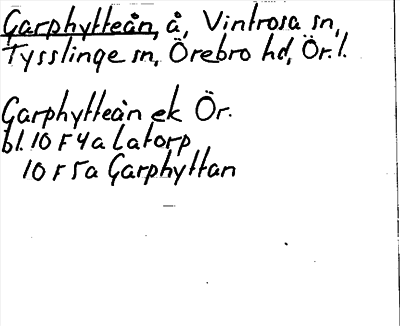 Garphytteån, å, Vintrosa sn,
Tysslinge sn, Örebro hd, Ör. l.
Garphytteån ek Ör.
bl. 10 F 4 a Latorp
10 F 5 a Garphyttan